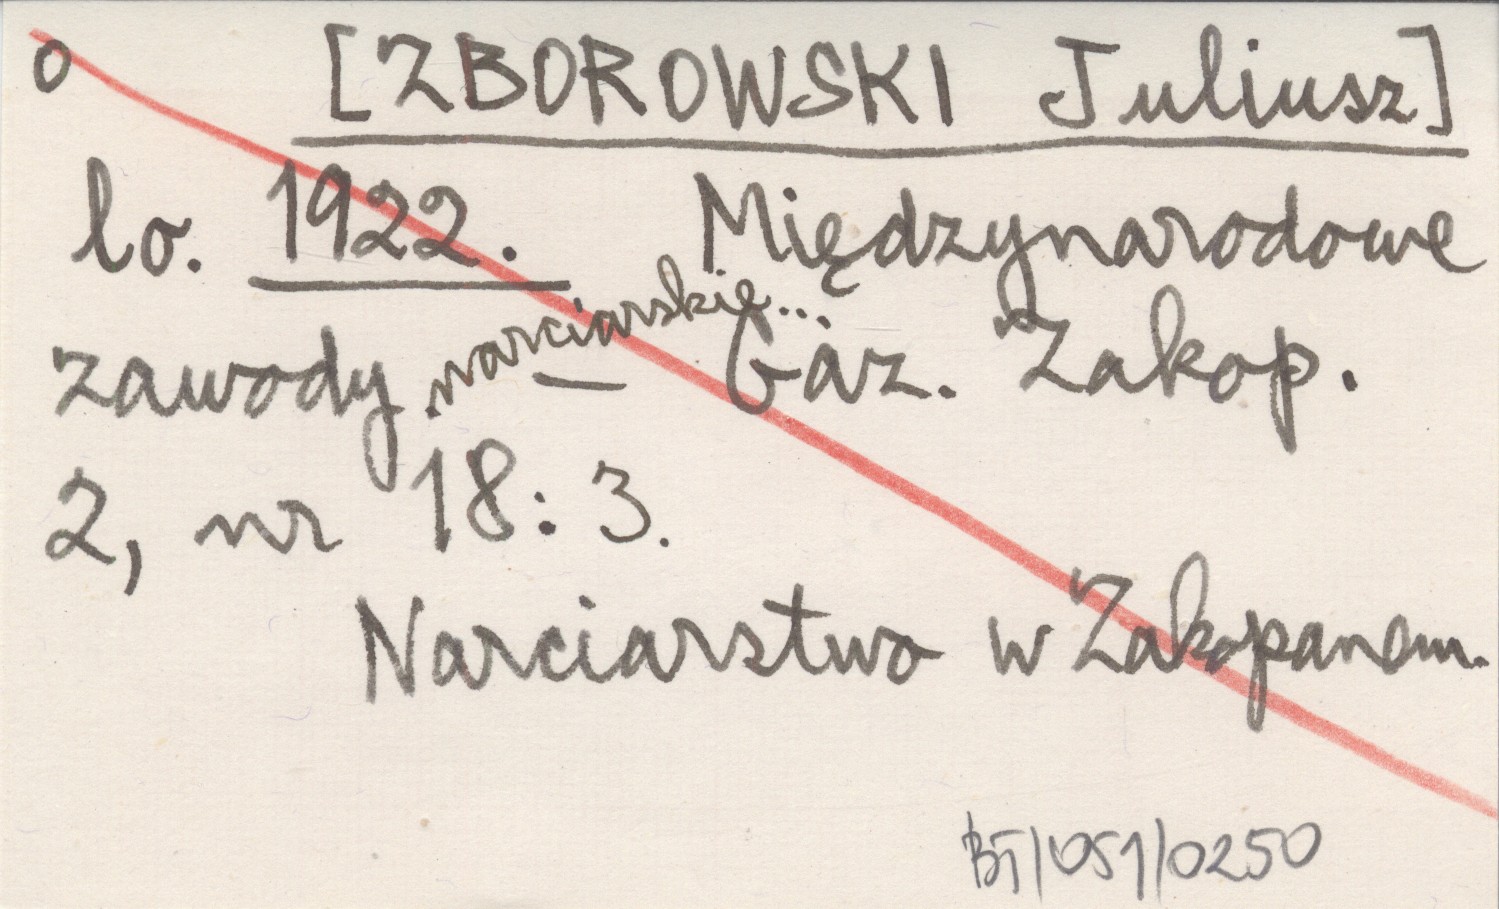 o [ZBOROWSKI Juliusz]
lo. 1922. Międzynarodowe
zawody narciarskie... — Gaz. Zakop.
2, nr 18: 3.
Narciarstwo w Zakopanem.
BT/051/0250